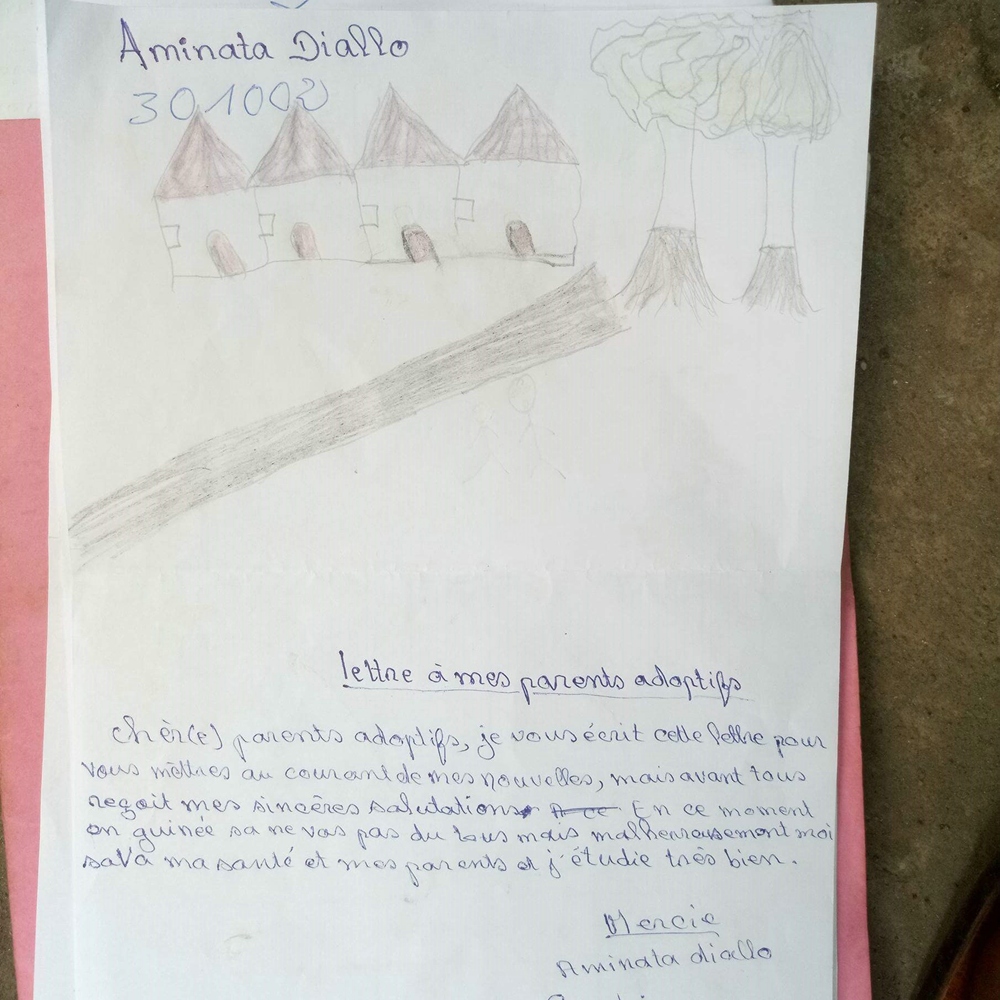 Aminata Diallo
301002
lettre à mes parents adoptifs
chèr(e) parents adoptifs, je vous écrit cette lettre pour
vous mettres au courant de mes nouvelles, mais avant tous
reçoit mes sincères salutations En ce moment
en guinée sa ne vas pas du tous mais malheureusement moi
sava ma santé et mes parents et j'étudie très bien.
Mercie
Aminata diallo